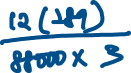 12 (289)
88000 x 3